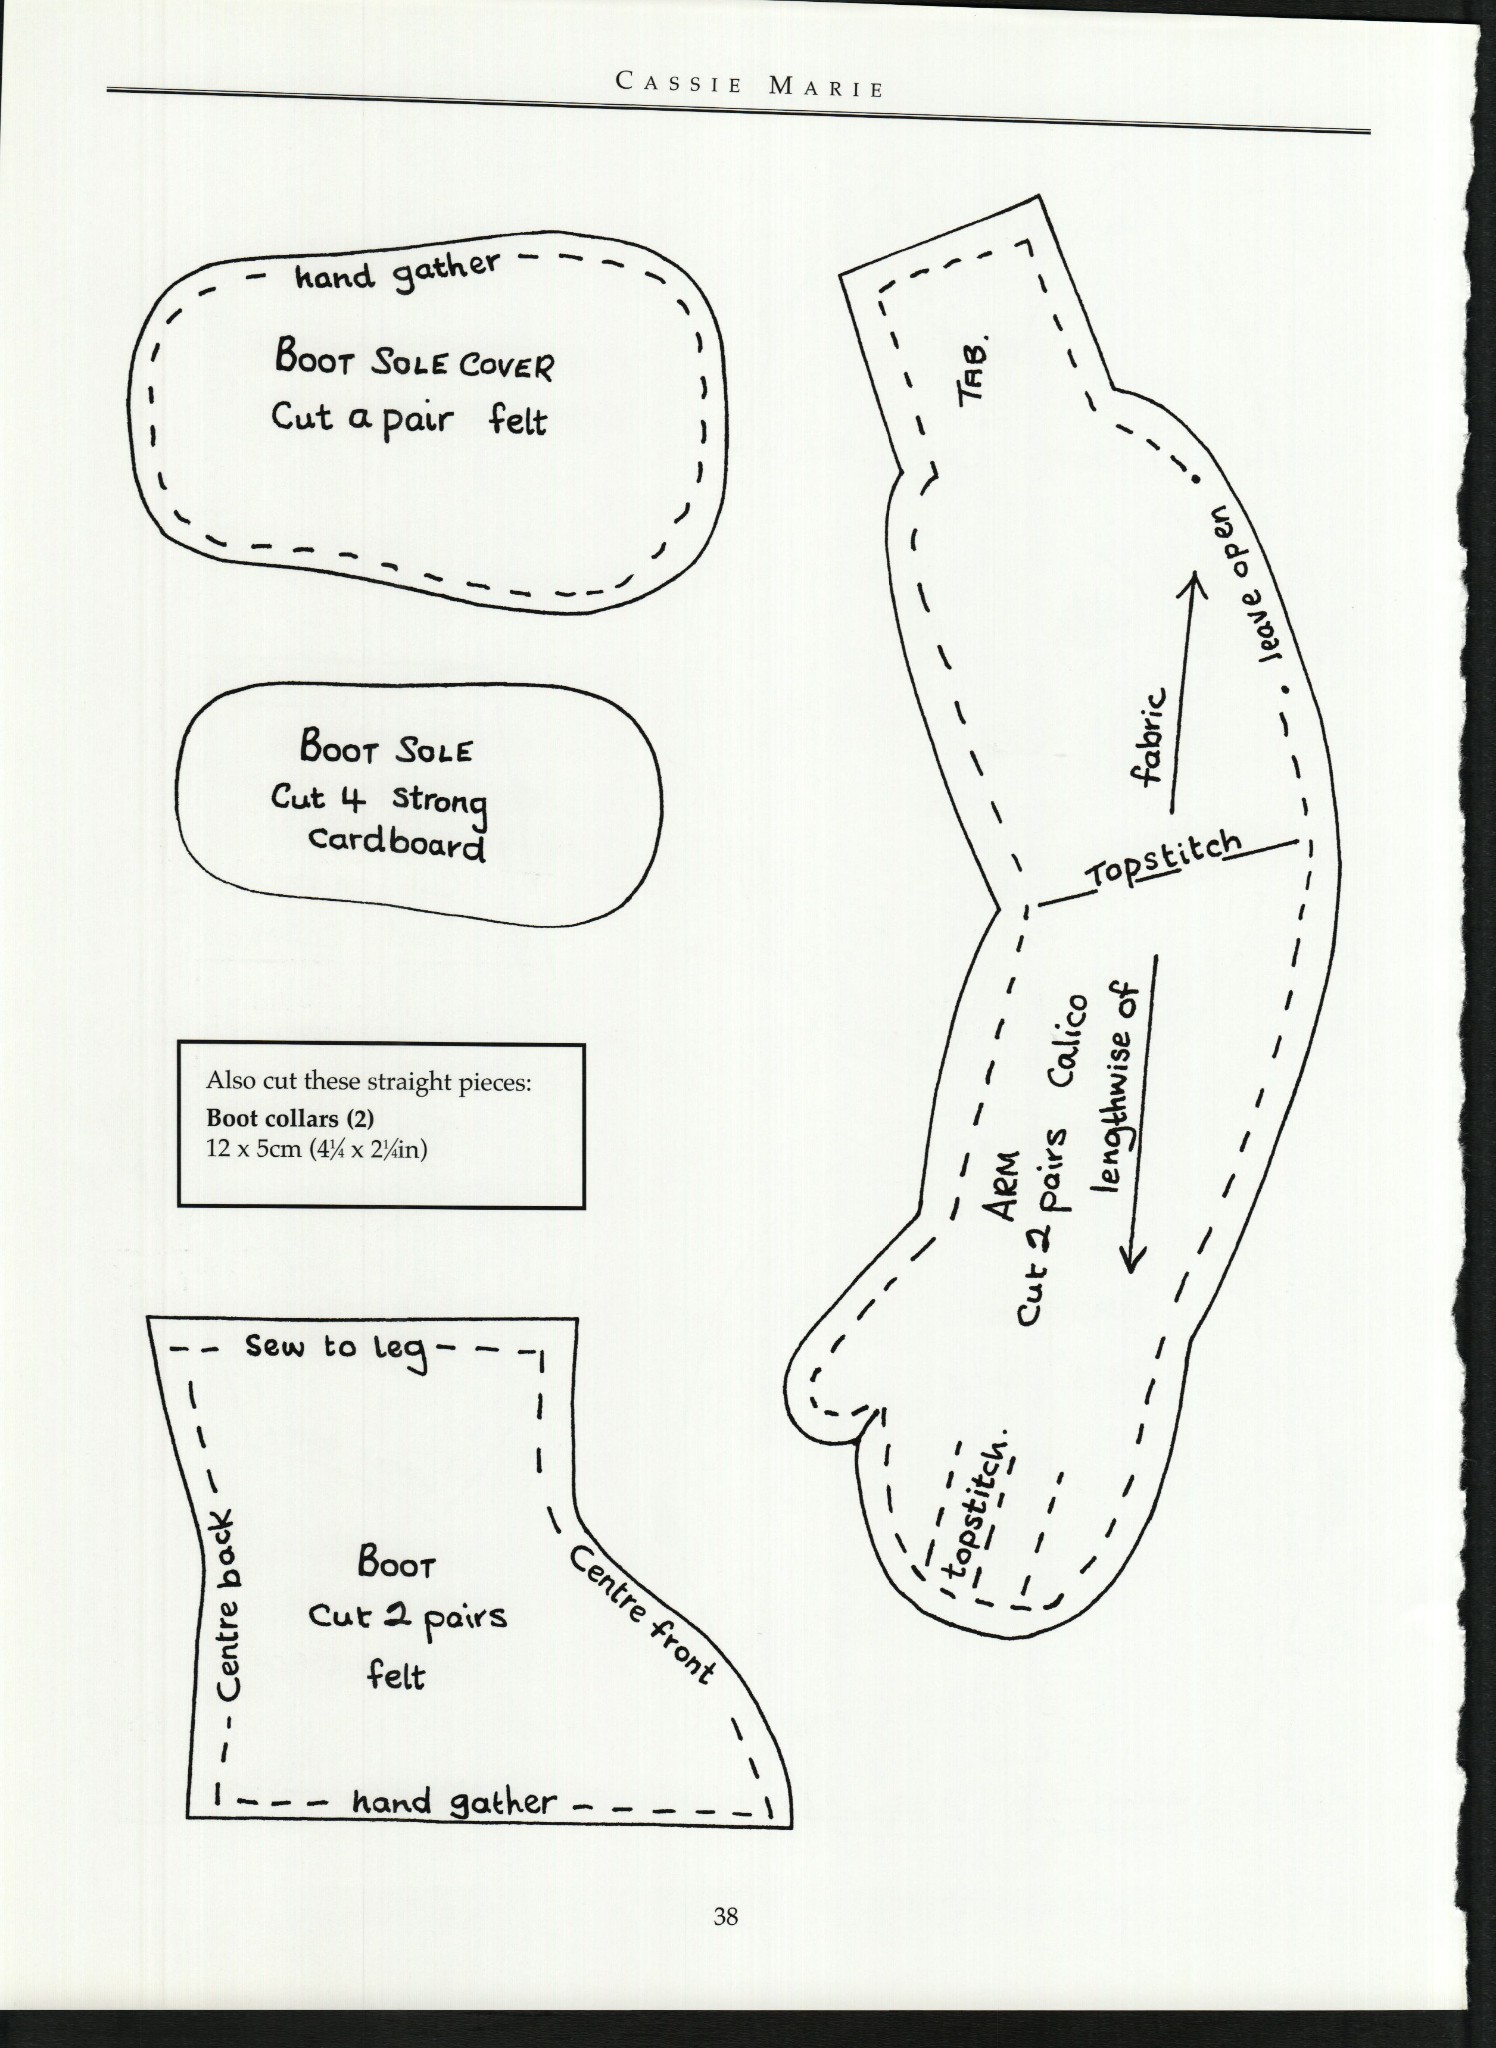 CASSIE MARIE
hand gather
BOOT SOLE COVER
Cut a pair felt
BOOT SOLE
Cut 4 strong
cardboard
Also cut these straight pieces:
Boot collars (2)
12 x 5cm (4¼ x 2¼in)
Sew to leg
Centre back
BOOT
Cut 2 pairs
felt
Centre front
hand gather
TAB.
leave open
fabric
Topstitch
ARM
Cut 2 pairs Calico
lengthwise of
topstitch.
38